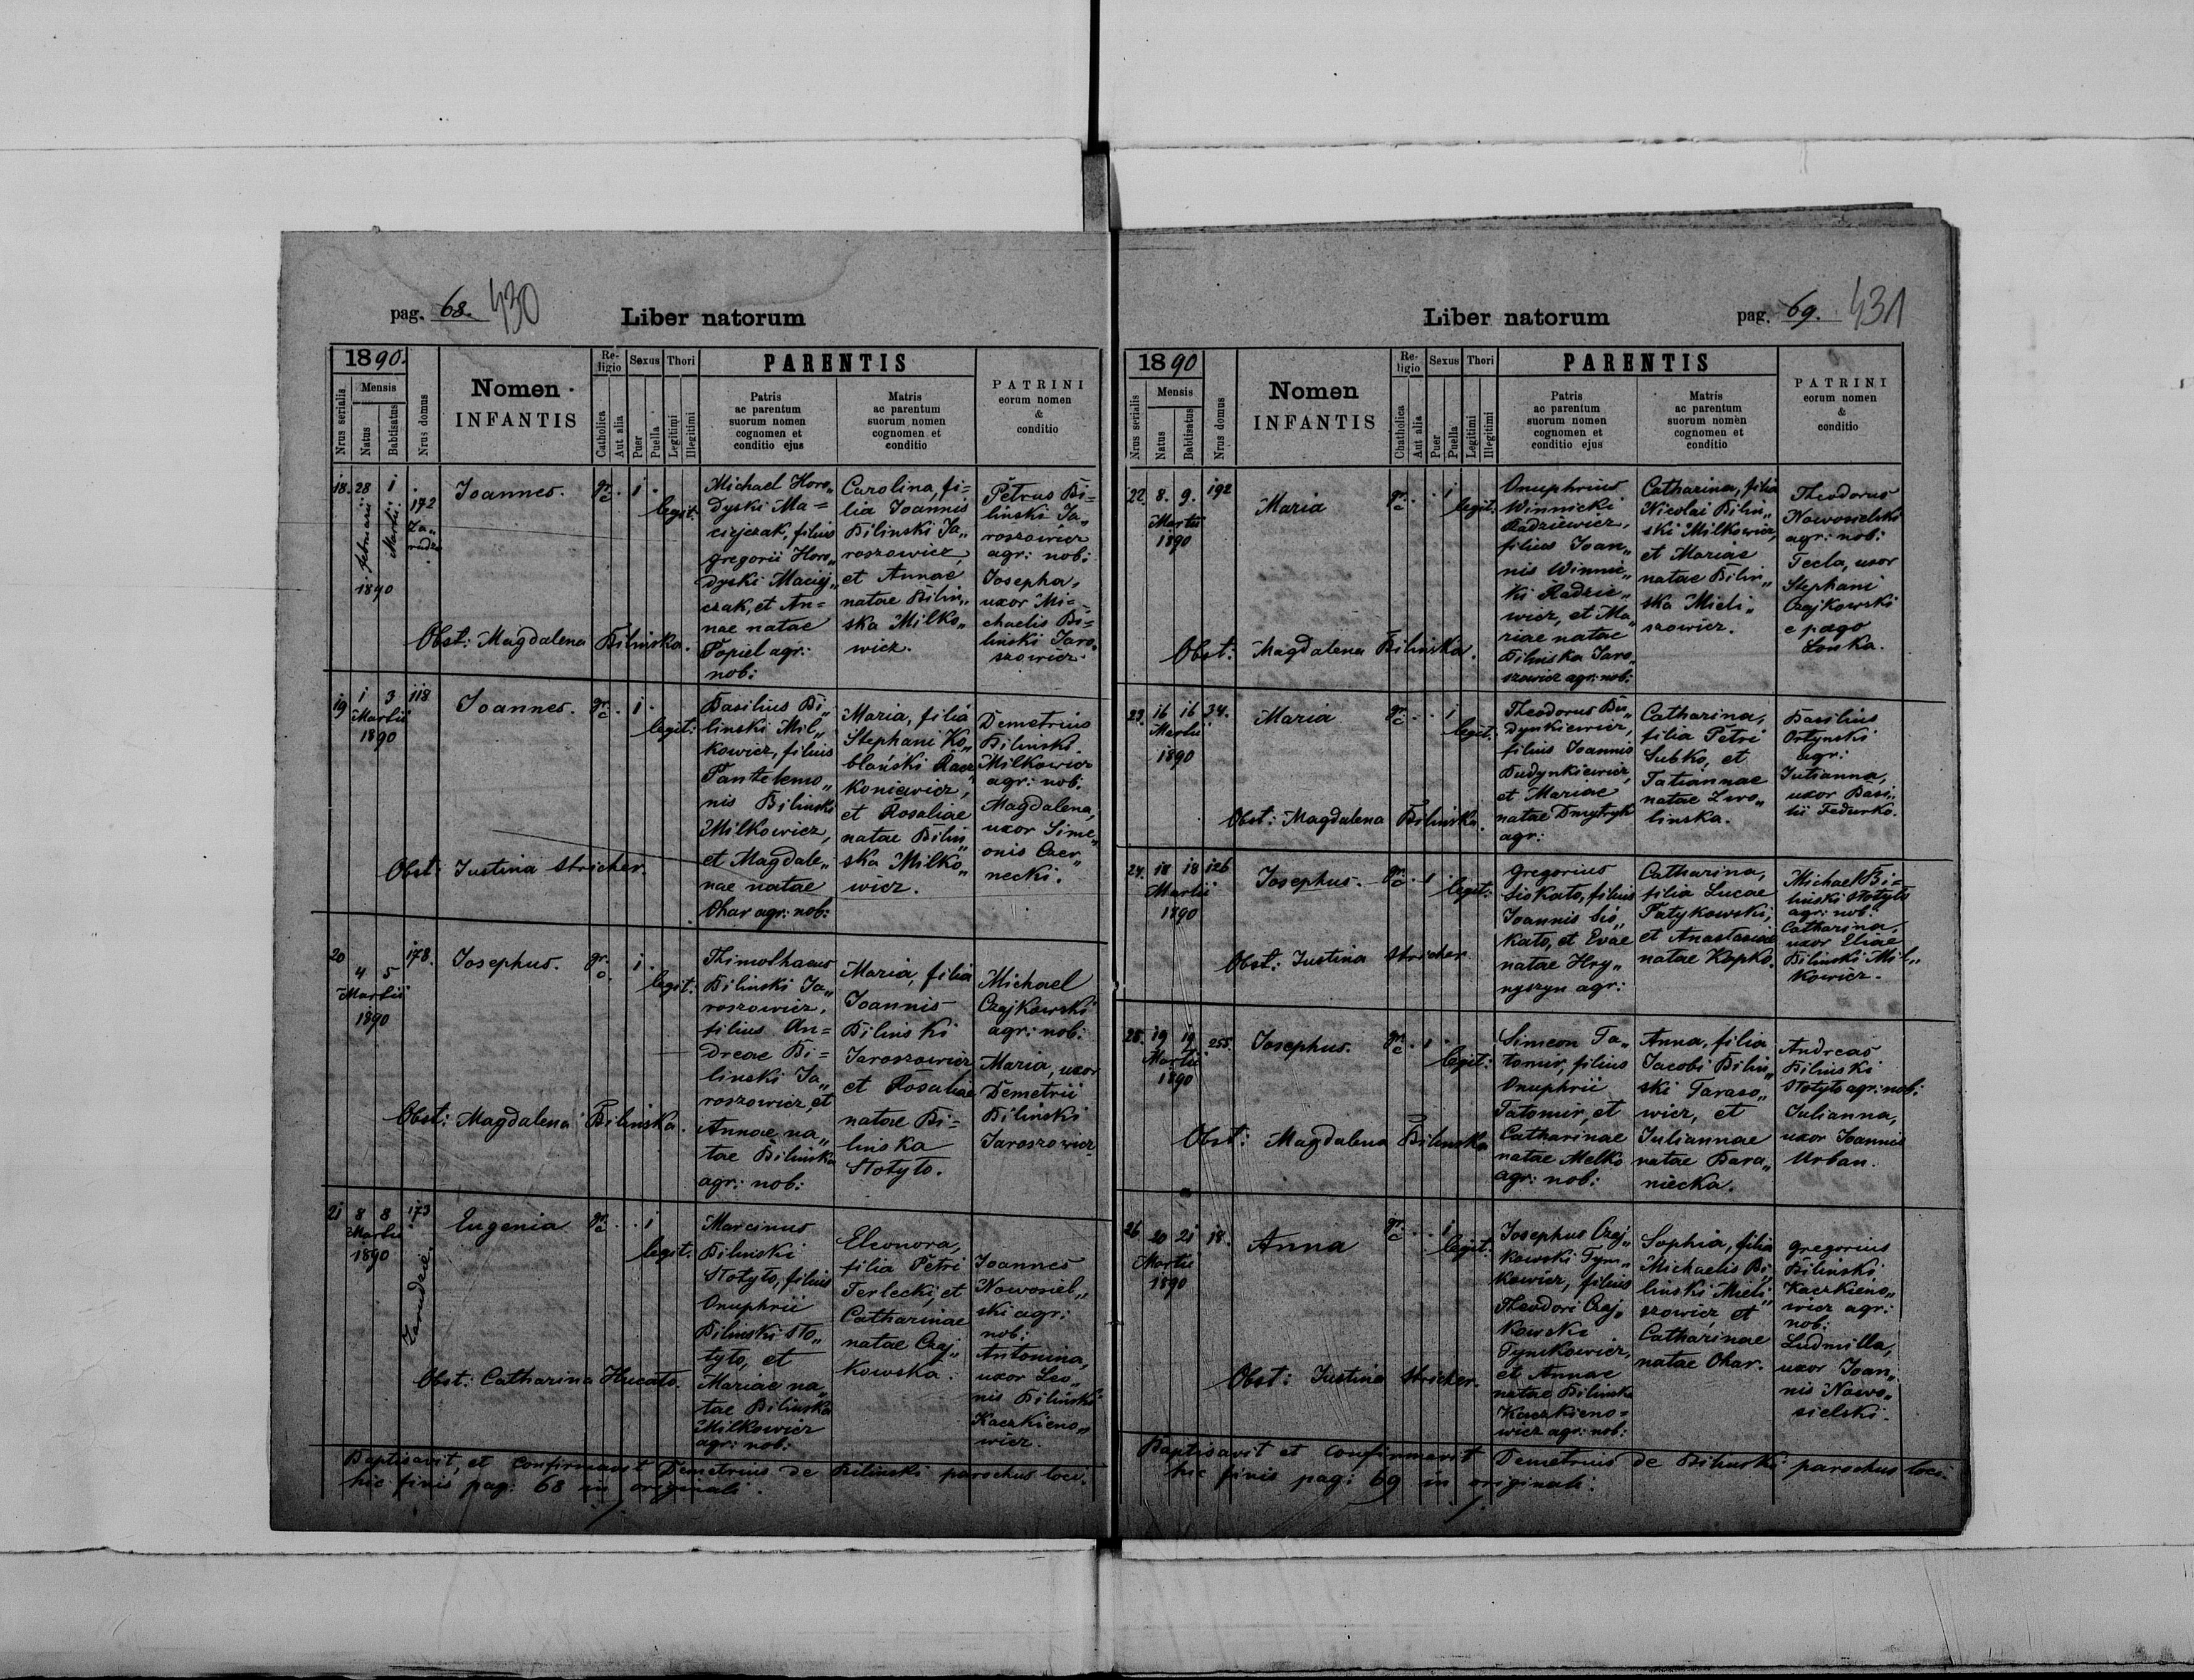 pag. 68. 430
Liber natorum
1890.
Nrus serialis
Mensis
Natus
Babtisatus
Nrus domus
Nomen
INFANTIS
Re-
ligio
Catholica
Aut alia
Sexus
Puer
Puella
Thori
Legitimi
Illegitimi
PARENTIS
Patris
ac parentum
suorum nomen
cognomen et
conditio ejus
Matris
ac parentum
suorum nomen
cognomen et
conditio
PATRINI
eorum nomen
&
conditio
18. 28 1
februarii Martii
1890
172
Za„
rudz.
Joannes.
gr. c. 1
legit:
Michael Horo„
dyski Ma=
ciejczak, filius
Gregorii Horo„
dyski Maciej„
czak, et An=
nae natae
Popiel agr:
nob:
Carolina, fi=
lia Joannis
Bilinski Ja„
roszowicz,
et Annae
natae Bilin„
ska Milko„
wicz.
Petrus Bi=
linski Ja„
roszowicz
agr: nob:
Josepha,
uxor Mi=
chaelis Bi=
linski Jaro„
szowicz.
Obst: Magdalena Bilinska.
19 1 3 118
Martii
1890
Joannes.
gr. c. 1
legit:
Basilius Bi„
linski Mil„
kowicz, filius
Pantelemo„
nis Bilinski
Milkowicz,
et Magdale„
nae natae
Ohar agr: nob:
Maria, filia
Stephani Ko„
blański Racz„
koniewicz,
et Rosaliae
natae Bilin„
ska Milko„
wicz.
Demetrius
Bilinski
Milkowicz
agr: nob:
Magdalena,
uxor Sime„
onis Czer„
necki.
Obst: Justina Stricher.
20 4 5 178.
Martii
1890
Josephus.
gr. c. 1
legit.
Thimothaeus
Bilinski Ja„
roszowicz,
filius An=
dreae Bi=
linski Ja„
roszowicz, et
Annae na„
tae Bilinska
agr: nob:
Maria, filia
Joannis
Bilinski
Jaroszowicz
et Rosaliae
natae Bi=
linska
Stotyto.
Michael
Czajkowski
agr: nob:
Maria, uxor
Demetrii
Bilinski
Jaroszowicz
Obst: Magdalena Bilinska.
21 8 8 173
Martii
1890
Zarudzie.
Eugenia
gr. c. 1
legit.
Marcinus
Bilinski
Stotyto, filius
Onuphrii
Bilinski Sto„
tyto, et
Mariae na„
tae Bilinska
Milkowicz
agr: nob:
Eleonora,
filia Petri
Terlecki, et
Catharinae
natae Czaj„
kowska.
Joannes
Nowosiel„
ski agr:
nob:
Antonina,
uxor Leo„
nis Bilinski
Kaczkieno„
wicz.
Obst: Catharina Hucato.
Baptisavit, et confirmavit Demetrius de Bilinski parochus loci.
hic finis pag: 68 in originali.
pag. 69. 431
Liber natorum
1890
Nrus serialis
Mensis
Natus
Babtisatus
Nrus domus
Nomen
INFANTIS
Re-
ligio
Chatholica
Aut alia
Sexus
Puer
Puella
Thori
Legitimi
Illegitimi
PARENTIS
Patris
ac parentum
suorum nomen
cognomen et
conditio ejus
Matris
ac parentum
suorum nomen
cognomen et
conditio
PATRINI
eorum nomen
&
conditio
22. 8. 9. 192
Martii
1890
Maria
gr. c. 1
legit:
Onuphrius
Winnicki
Radziewicz,
filius Joan„
nis Winnic„
ki Radzie„
wicz, et Ma„
riae natae
Bilinska Jaro„
szowicz agr: nob:
Catharina, filia
Nicolai Bilin„
ski Milkowicz,
et Mariae
natae Bilin„
ska Mieli„
szowicz.
Theodorus
Nowosielski
agr: nob:
Tecla, uxor
Stephani
Czajkowski
e pago
Lonka.
Obst: Magdalena Bilinska.
23. 16 16 34.
Martii
1890
Maria
gr. c. 1
legit:
Theodorus Bu„
dynkiewicz,
filius Joannis
Budynkiewicz,
et Mariae
natae Dmytryk
agr:
Catharina,
filia Petri
Subko, et
Tatiannae
natae Zwo„
linska.
Basilius
Ortynski
agr:
Julianna,
uxor Basi„
lii Fedurko.
Obst: Magdalena Bilinska.
24. 18 18 126
Martii
1890
Josephus.
gr. c. 1
legit:
Gregorius
Siokato, filius
Joannis Sio„
kato, et Evae
natae Hry„
nyszyn agr:
Catharina,
filia Lucae
Fatykowski,
et Anastasiae
natae Kopko.
Michael Bi=
linski Stotyto
agr: nob:
Catharina,
uxor Eliae
Bilinski Mil„
kowicz.
Obst: Justina Stricher.
25. 19 19 255.
Martii
1890
Josephus.
gr. c. 1
legit:
Simeon Ta„
tomir, filius
Onuphrii
Tatomir, et
Catharinae
natae Melko
agr: nob:
Anna, filia
Jacobi Bilin„
ski Taraso„
wicz, et
Juliannae
natae Bara„
niecka.
Andreas
Bilinski
Stotyto agr: nob:
Julianna,
uxor Joannis
Urban.
Obst: Magdalena Bilinska
26 20 21 18.
Martii
1890
Anna
gr. c. 1
legit:
Josephus Czaj„
kowski Tym„
kowicz, filius
Theodori Czaj„
kowski
Tymkowicz,
et Annae
natae Bilinska
Kaczkieno=
wicz agr: nob:
Sophia, filia
Michaelis Bi„
linski Mieli„
szowicz, et
Catharinae
natae Ohar.
Gregorius
Bilinski
Kaczkieno„
wicz agr:
nob:
Ludmilla,
uxor Joan„
nis Nowo„
sielski.
Obst: Justina Stricher.
Baptisavit et confirmavit Demetrius de Bilinski parochus loci.
hic finis pag: 69 in originali.